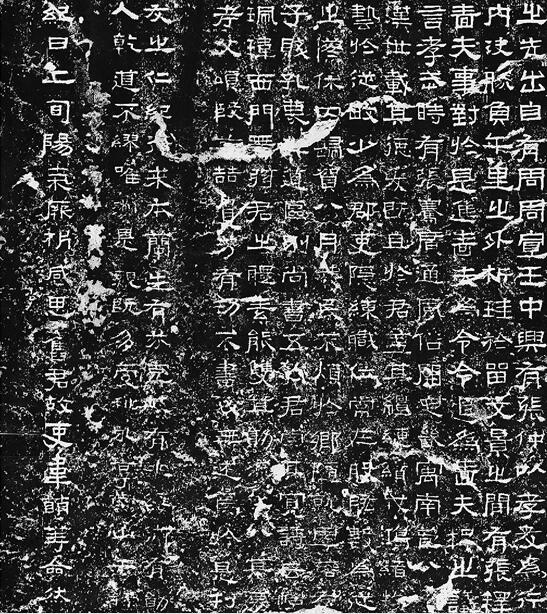 之先出自有周周宣王中興有張仲以孝友為行
內決勝負千里之外析珪於留文景之間有張釋
嗇夫事對於是進嗇夫為令令退為嗇夫釋之議
言孝武時有張騫廣通風俗開定畿寓南苞八
漢世載其德爰既且於君蓋其繵縺纘戎鴻緒
藝於從畋少為郡吏隱練職位常在股肱數為從
止傍休囚歸賀八月筭民不煩於鄉隨就虛落存
子賤孔蔑其道區別尚書五教君崇其寬詩云愷
珮瑋西門帶弦君之體素能雙其勛流化八基遷
考父頌殷前喆遺芳有功不書後無述焉於是刊
友之仁紀行來本蘭生有芬克岐有兆綏御有勛
人乾道不繆唯淑是親既多受祉永享南山干祿
紀日上旬陽氣厥析感思舊君故吏韋萌等僉然